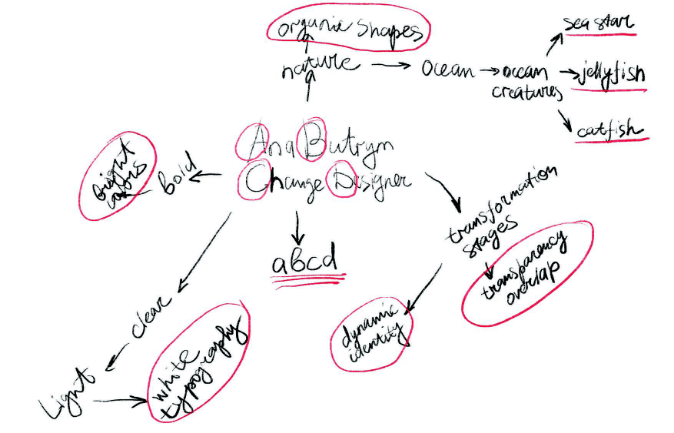 organic shapes
sea star
nature
ocean
ocean
creatures
jellyfish
catfish
Ana Butrym
Change Designer
bright
colors
bold
transformation
stages
abcd
transparency
overlap
clear
dynamic
identity
white
typography
Light